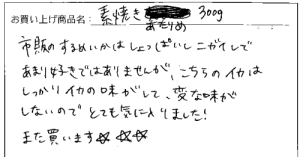 お買い上げ商品名: 素焼きあたりめ 300g
市販のするめいかは しょっぱいしニガイしで
あまり好きではありませんが、こちらのイカは
しっかりイカの味がして、変な味が
しないので とても気に入りました!
また買います☆☆☆